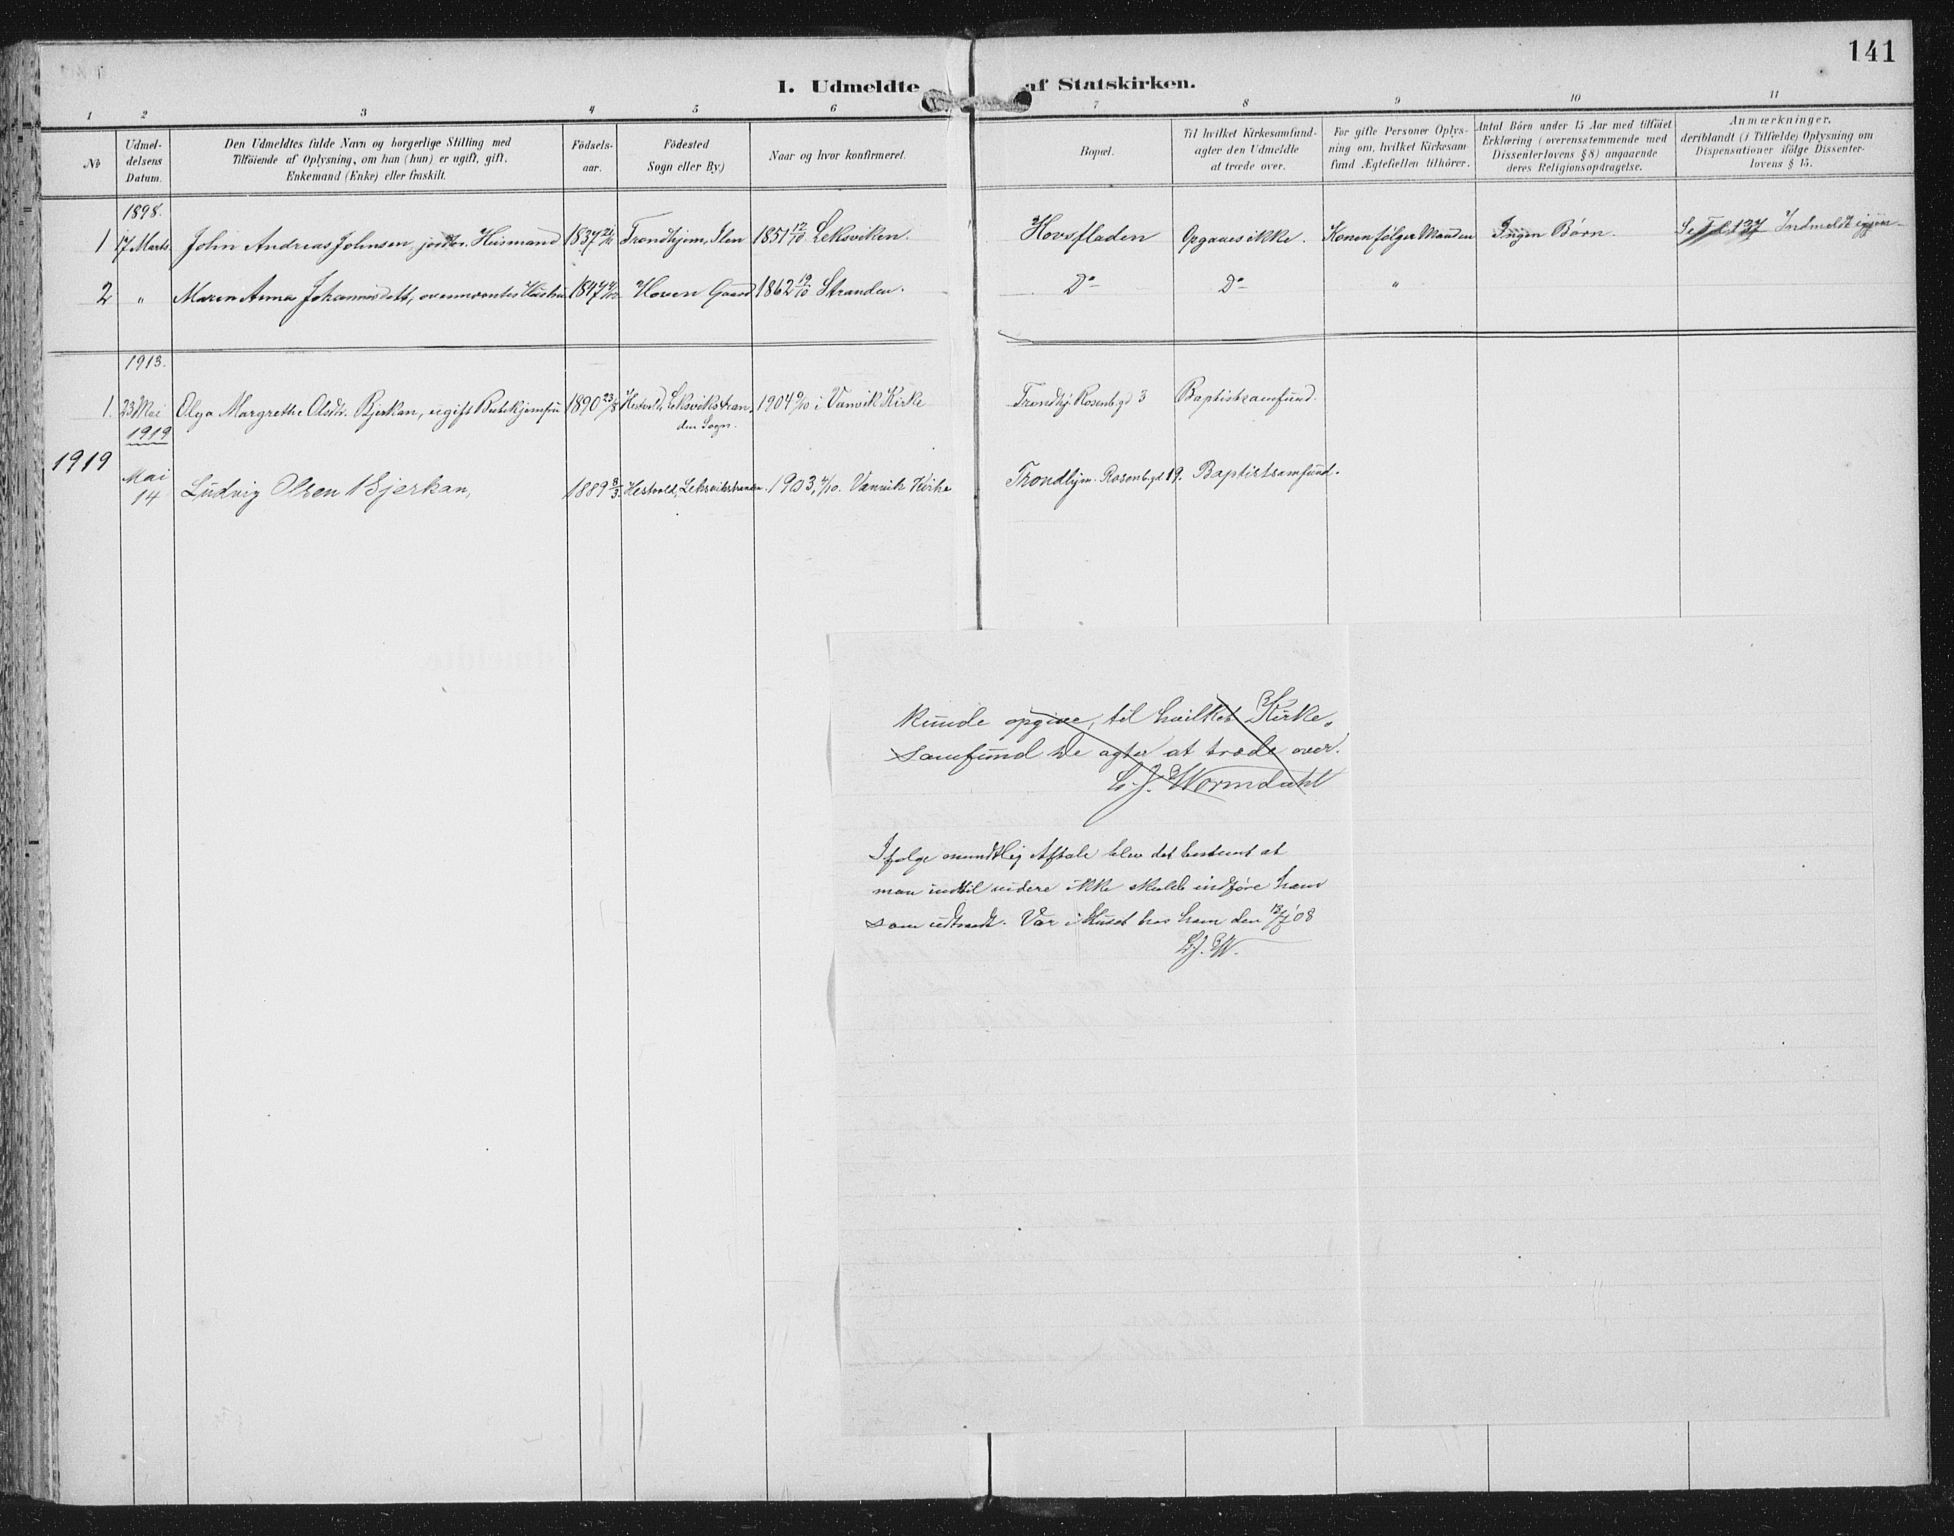 141
I. Udmeldte af Statskirken.
1 2 3 4 5 6 7 8 9 10 11
No
Udmel-
delsens
Datum.
Den Udmeldtes fulde Navn og borgerlige Stilling med
Tilföiende af Oplysning, om han (hun) er ugift, gift,
Enkemand (Enke) eller fraskilt.
Födsels-
aar.
Födested
Sogn eller By)
Naar og hvor konfirmeret.
Bopæl.
Til hvilket Kirkesamfund
agter den Udmeldte
at træde over.
For gifte Personer Oplys-
ning om, hvilket Kirkesam
fund Ægtefællen tilhörer.
Antal Börn under 15 Aar med tilföiet
Erklæring (overensstemmende med
Dissenterlovens § 8) angaaende
deres Religionsopdragelse.
Anmærkninger,
deriblandt (i Tilfælde) Oplysning om
Dispensationer ifölge Dissenter-
lovens § 15.
1898.
1 17 Marts John Andreas Johnsen, Husmand 1837 Trondhjem, Ilen 1851 12/10 Leksviken. Hovsfladen Opgaves ikke. Konen følger Manden Ingen Børn. Se 137 Indmeldt igjen
2 " Maren Anna Johannesdatt, 1847 Hoven Gaard 1862 19/10 Stranden. Do Do "
1913.
1. 23 Mai Olga Margrethe Olsdtr. Bjerkan, ugift Butikjomfru 1890 23/8 Hestvold, Leksvikstran 1904 i Vanvik Kirke Trondhj. Rosenb.gd 3 Baptistsamfund.
den Sogn.
1919
1919 Mai
14 Ludvig Olsen Bjerkan, 1889 8/3 Hestvold, Leksvikstranden. 1903, 4/10. Vanvik Kirke Trondhjem. Rosenb.gd 19. Baptistsamfund.
kunde opgive, til hvilket Kirke-
samfund De agter at træde over.
L. J. Wormdahl
Ifølge mundtlig Aftale blev det bestemt at
man indtil videre ikke skulde indføre ham
som udtraadt. Var i Huset hos ham den 13/7 '08
L. J. W.